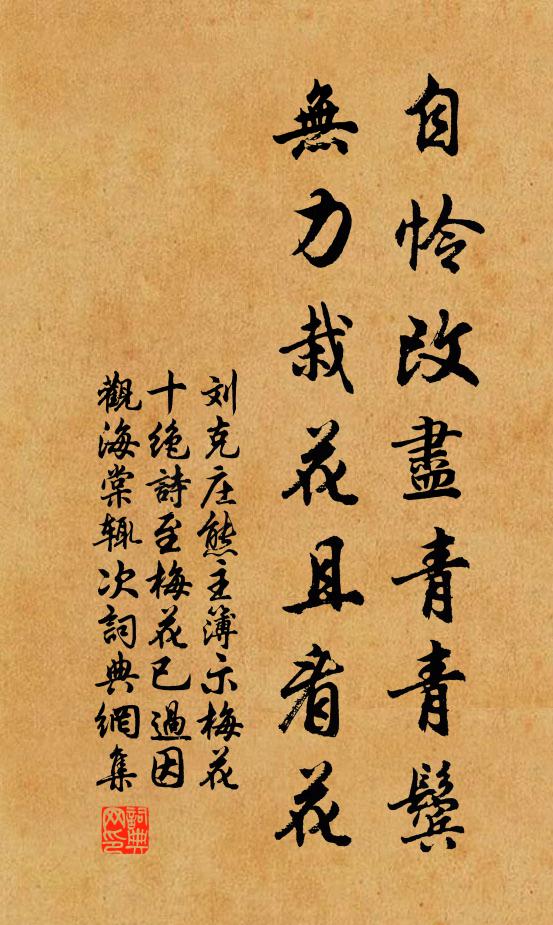 自怜改盡青青鬓
無力栽花且看花
刘克庄熊主簿示梅花
十绝詩至梅花已過因
觀海棠辄次詞典網集
詞典
网印